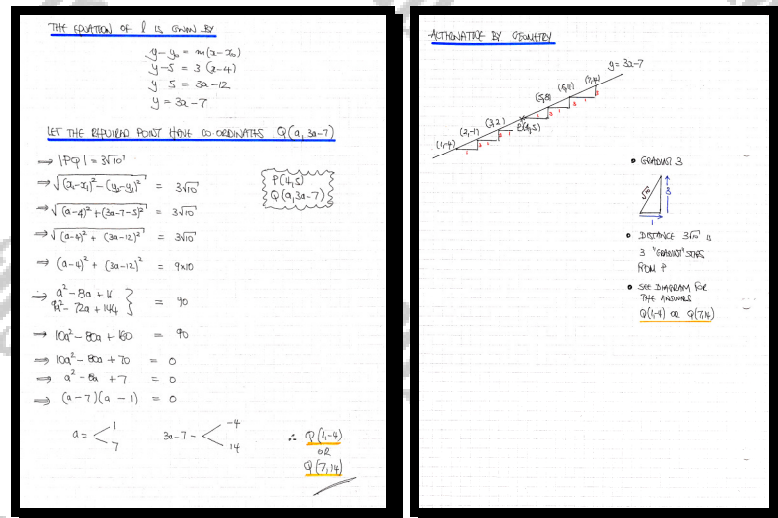 THE EQUATION OF l IS GIVEN BY
y - y₀ = m(x - x₀)
y - 5 = 3(x - 4)
y 5 = 3x - 12
y = 3x - 7
LET THE REQUIRED POINT HAVE CO-ORDINATES Q(a, 3a-7)
⇒ |PQ| = 3√10
⇒ √(x₂-x₁)² - (y₂-y₁)² = 3√10
P(4,5)
Q(a,3a-7)
⇒ √(a-4)² + (3a-7-5)² = 3√10
⇒ √(a-4)² + (3a-12)² = 3√10
⇒ (a-4)² + (3a-12)² = 9×10
⇒ a² - 8a + 16
9a² - 72a + 144 } = 90
⇒ 10a² - 80a + 160 = 90
⇒ 10a² - 80a + 70 = 0
⇒ a² - 8a + 7 = 0
⇒ (a - 7)(a - 1) = 0
a = < 1
7
3a-7 = < -4
14
∴ Q(1,-4)
OR
Q(7,14)
ALTERNATIVE BY GEOMETRY
y = 3x-7
(7,14)
(6,11)
(5,8)
P(4,5)
(3,2)
(2,-1)
(1,-4)
• GRADIENT 3
√10
3
1
• DISTANCE 3√10 IS
3 "GRADIENT" STEPS
FROM P
• SEE DIAGRAM FOR
THE ANSWERS
Q(1,-4) OR Q(7,14)